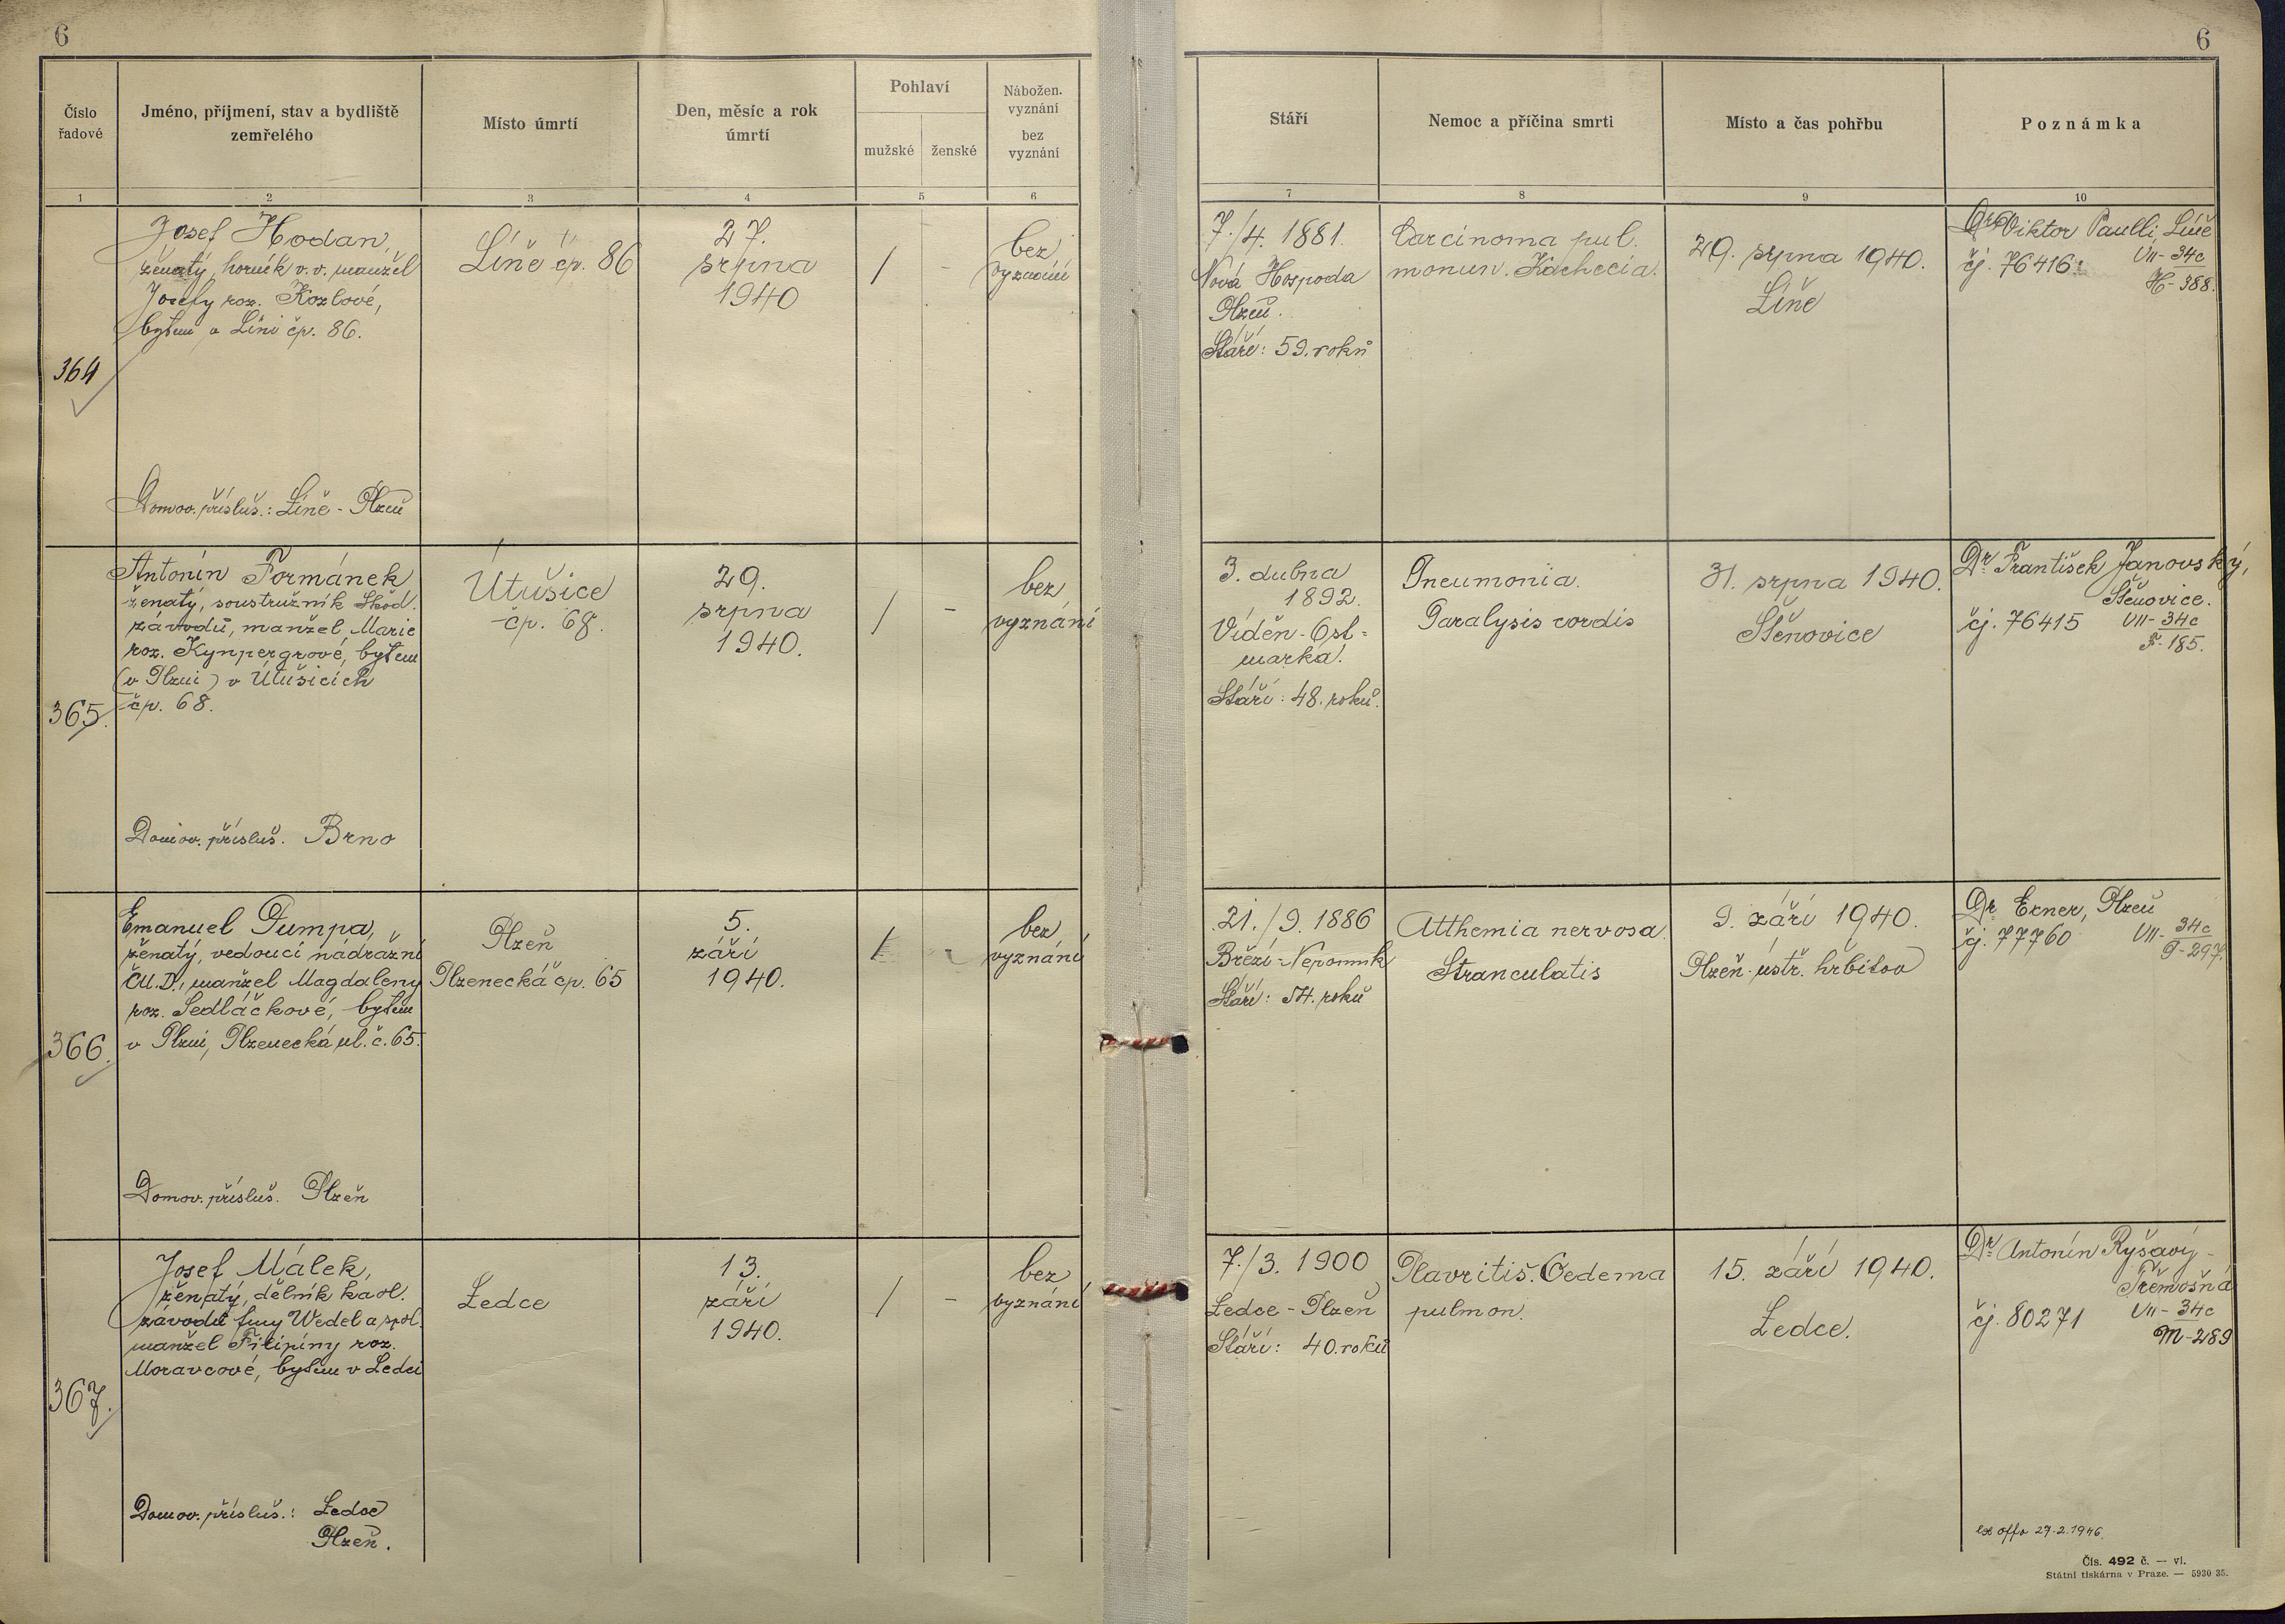 6
6
Číslo
řadové
Jméno, příjmení, stav a bydliště
zemřelého
Místo úmrtí
Den, měsíc a rok
úmrtí
Pohlaví
mužské
ženské
Nábožen.
vyznání
bez
vyznání
Stáří
Nemoc a příčina smrti
Místo a čas pohřbu
Poznámka
1
2
3
4
5
6
7
8
9
10
364
Josef Hodan,
ženatý, horník v. v. manžel
Josefy roz. Kozlové,
bytem v Líni čp. 86.
Domov. přísluš.: Líně - Plzeň
Líně čp. 86
27.
srpna
1940
/
-
bez
vyznání
7./4. 1881.
Nová Hospoda
Plzeň.
Stáří: 59. roků
Carcinoma pul.
monun. Kachecia.
29. srpna 1940.
Líně
Dr Viktor Paulli, Líně
čj. 76416.
VII-34c
H-388.
365.
Antonín Formánek
ženatý, soustružník Škod.
závodů, manžel, Marie
roz. Kynpergrové, bytem
(v Plzni) v Útušicích
čp. 68.
Domov. přísluš. Brno
Útušice
čp. 68.
29.
srpna
1940.
/
-
bez
vyznání
3. dubna
1892.
Vídeň-Ost=
marka.
Stáří: 48. roků.
Pneumonia.
Paralysis cordis
31. srpna 1940.
Štěnovice
Dr František Janovský,
Štěnovice.
čj. 76415
VII-34c
F-185.
366.
Emanuel Pumpa,
ženatý, vedoucí nádražní
ČM.D., manžel Magdaleny
roz. Sedláčkové, bytem
v Plzni, Plzenecká ul. č. 65.
Domov. přísluš. Plzeň
Plzeň
Plzenecká čp. 65
5.
září
1940.
/
-
bez
vyznání
21./9. 1886
Březí-Nepomuk
Stáří: 54. roků
Atthemia nervosa
Stranculatis
9. září 1940.
Plzeň ústř. hřbitov
Dr Exner, Plzeň
čj. 77760
VII-34c
P-297.
367.
Josef Málek,
ženatý, dělník kaol.
závodů fmy Wedel a spol.
manžel Filipíny roz.
Moravcové, bytem v Ledci
Domov. přísluš.: Ledce
Plzeň.
Ledce
13.
září
1940.
/
-
bez
vyznání
7./3. 1900
Ledce-Plzeň
Stáří: 40. roků
Plavritis. Oedema
pulmon.
15. září 1940.
Ledce.
Dr Antonín Ryšavý-
Třemošná
čj. 80271
VII-34c
M-289
ex offo 27.2.1946.
Čís. 492 č. — vl.
Státní tiskárna v Praze. — 5930 35.